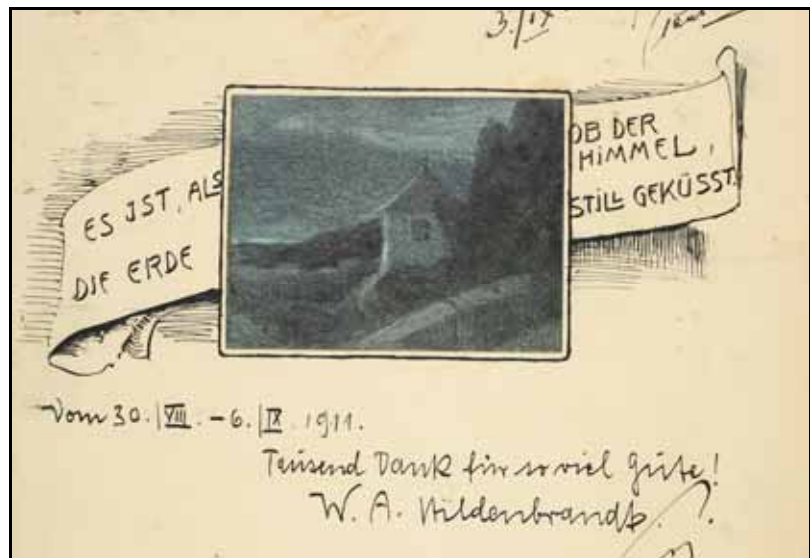 3./IX
ES IST, ALS OB DER
HIMMEL,
DIE ERDE STILL GEKÜSST.
Vom 30./VIII. - 6./IX 1911.
Tausend Dank für so viel Güte!
W. A. Hildenbrandt.